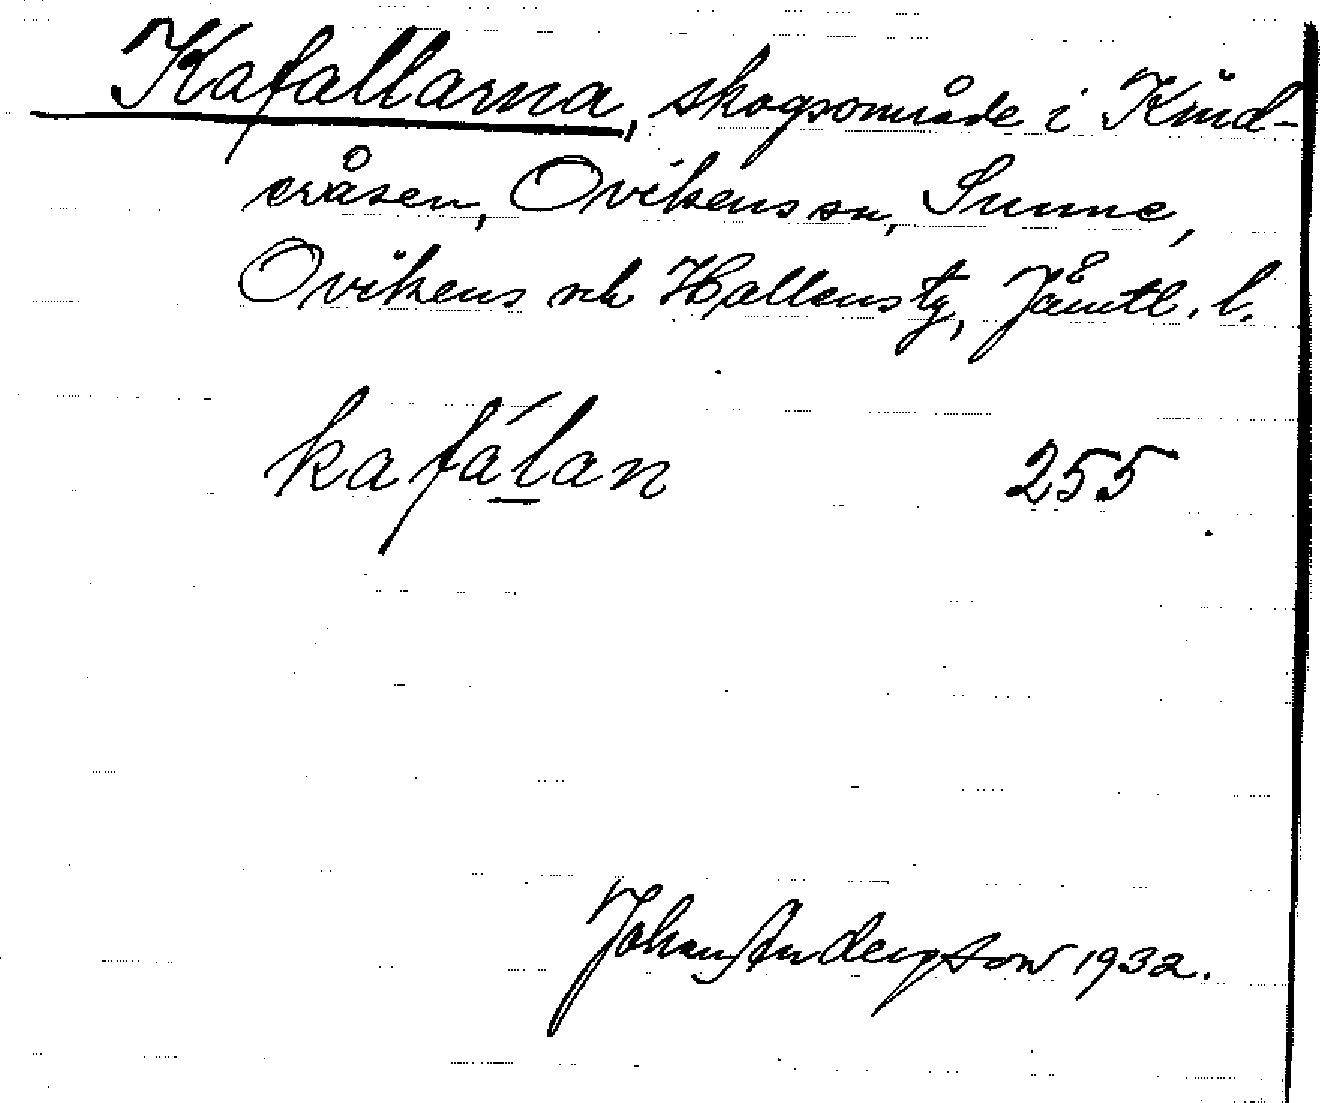 Kafallarna, skogsområde i Kind-
eråsen, Ovikens sn, Sunne,
Ovikens och Hallens tg, Jämtl. l.
kafálan 255
Johan Anderson 1932.